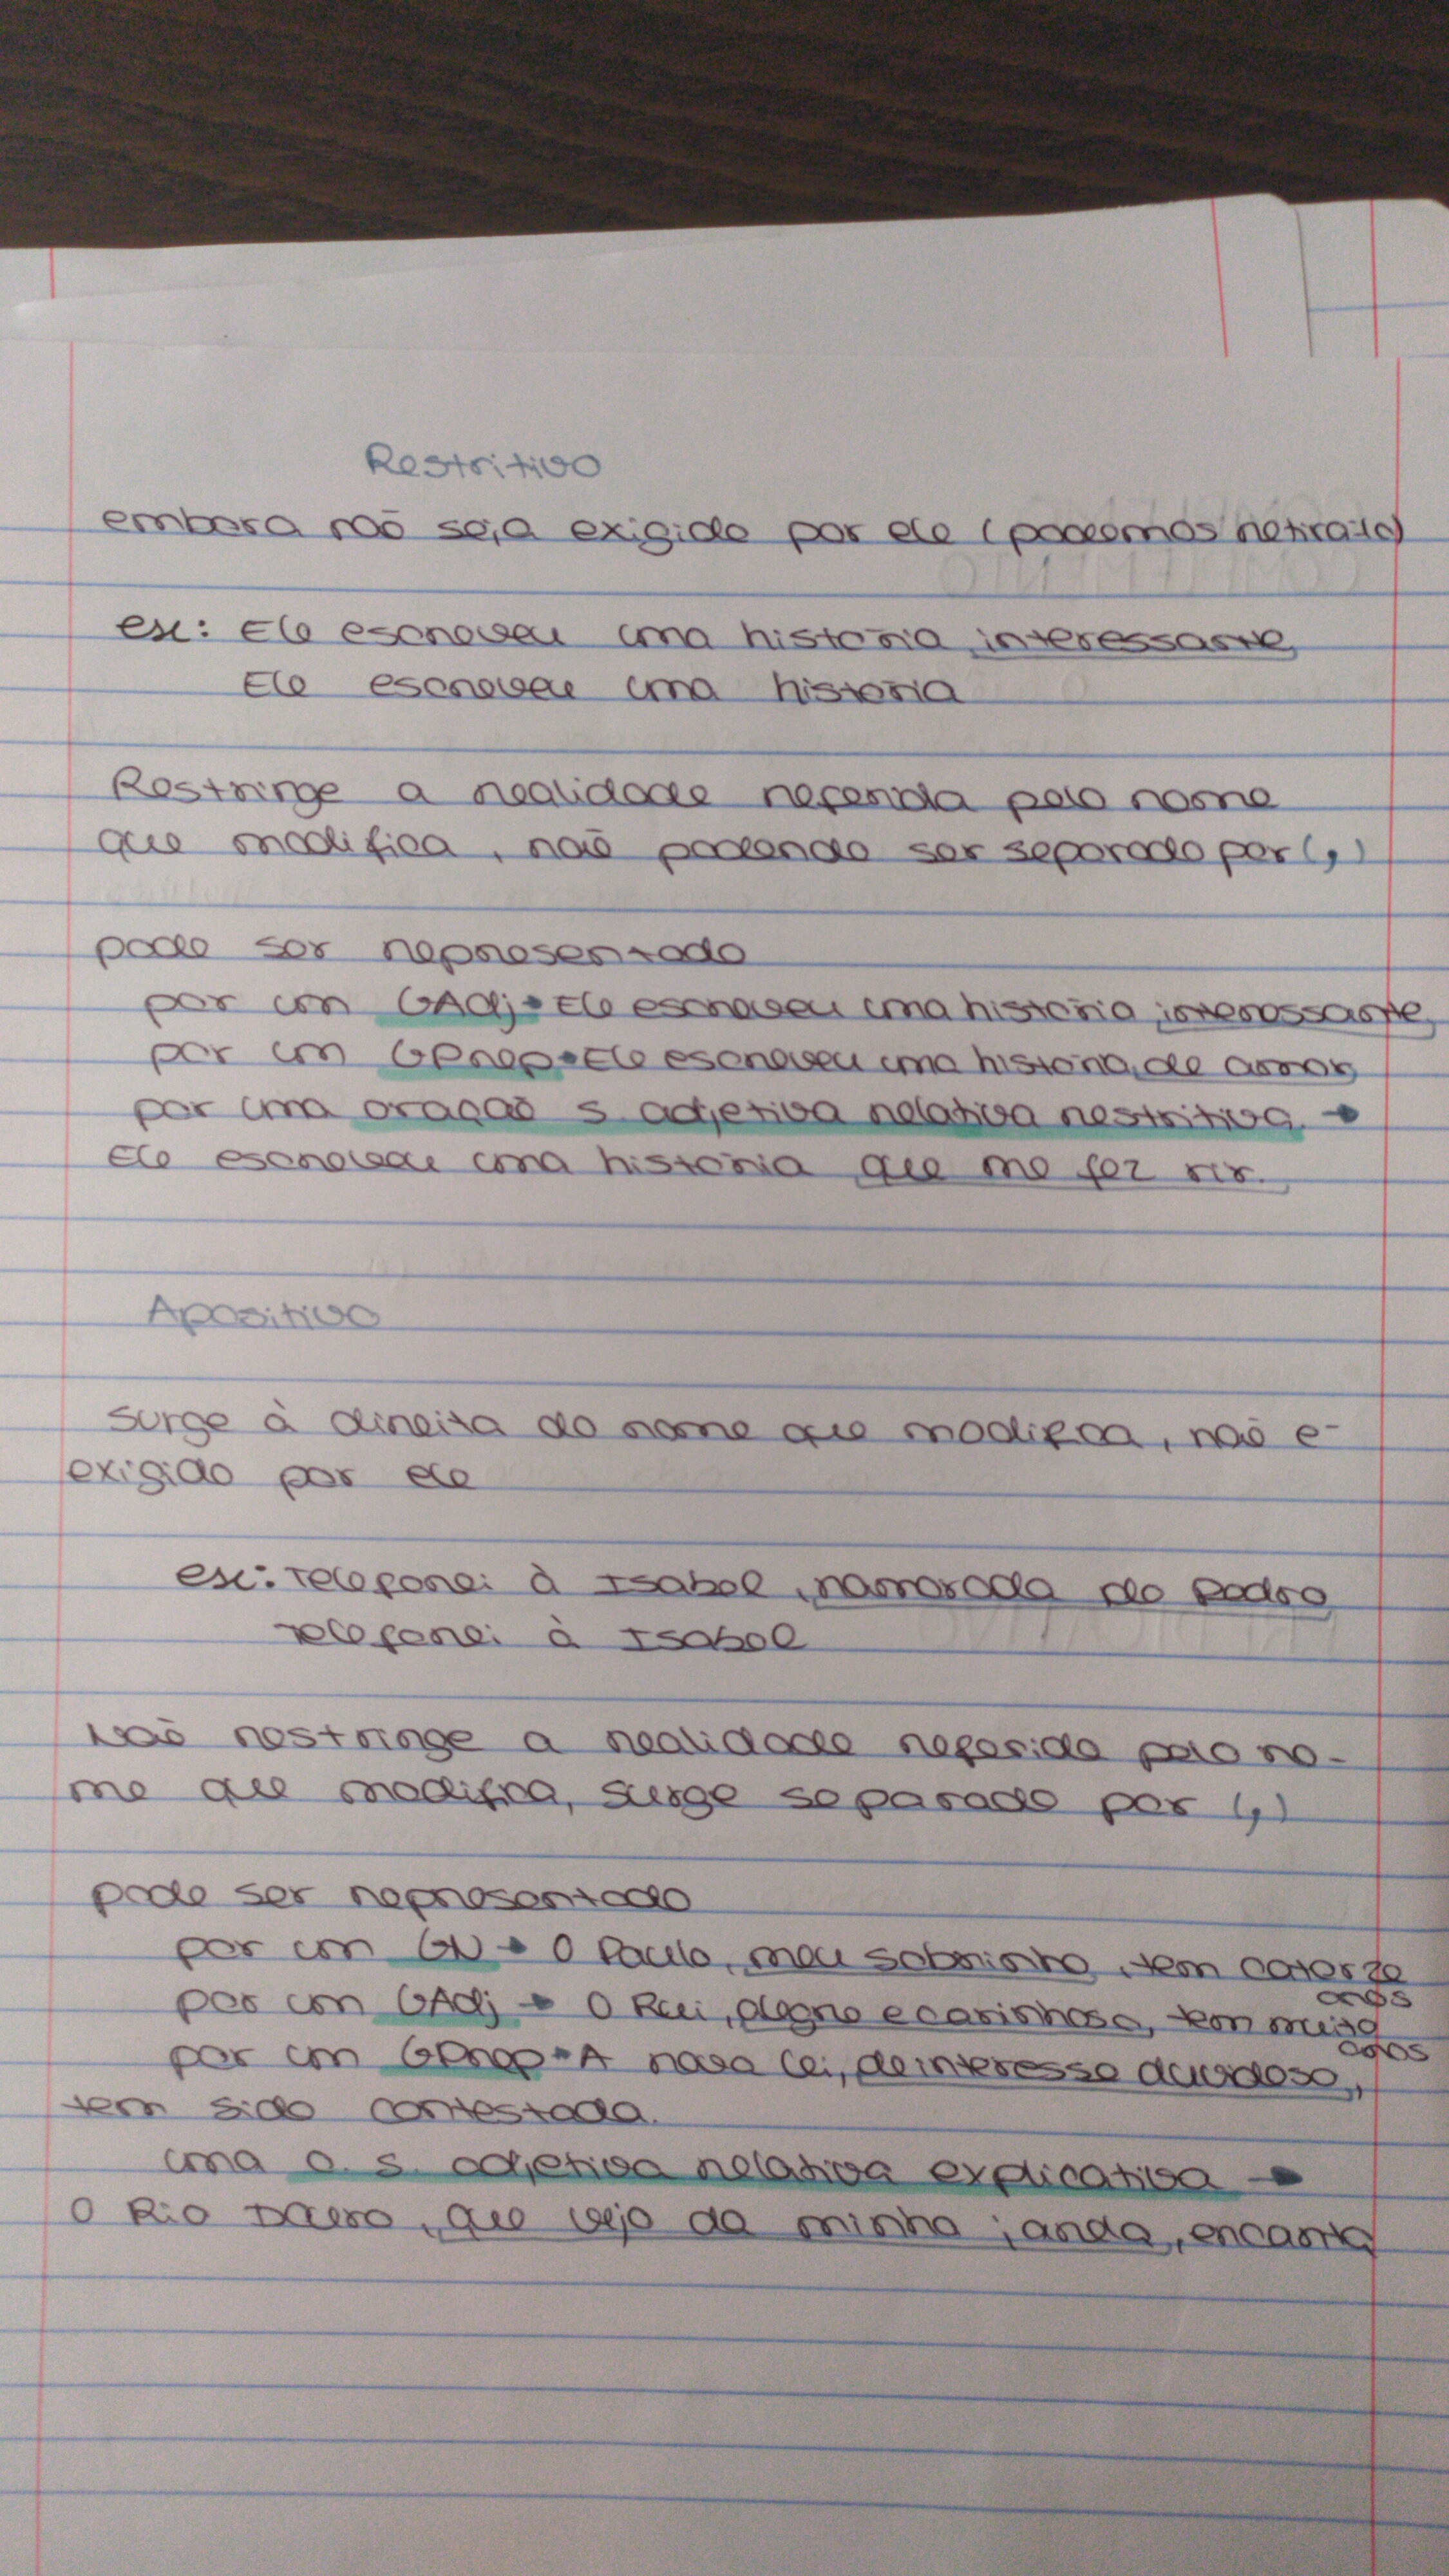 Restritivo
embora não seja exigido por ele (podemos retirá-lo)
ex: Ele escreveu uma historia interessante
Ele escreveu uma historia
Restringe a realidade referida pelo nome
que modifica, não podendo ser separado por (,)
pode ser representado
por um GAdj → Ele escreveu uma historia interessante
por um GPrep → Ele escreveu uma historia de amor
por uma oração s adjetiva relativa restritiva. →
Ele escreveu uma historia que me fez rir.
Apositivo
Surge à direita do nome que modifica, não é
exigido por ele
ex: Telefonei à Isabel, namorada do Pedro
Telefonei à Isabel
Não restringe a realidade referida pelo no-
me que modifica, surge separado por (,)
pode ser representado
por um GN → O Paulo, meu sobrinho, tem catorze
anos
por um GAdj → O Rui, alegre e carinhoso, tem
por um GPrep → A nova lei, de interesse duvidoso,
tem sido contestada.
uma o. s. adjetiva relativa explicativa →
O Rio Douro, que vejo da minha janela,